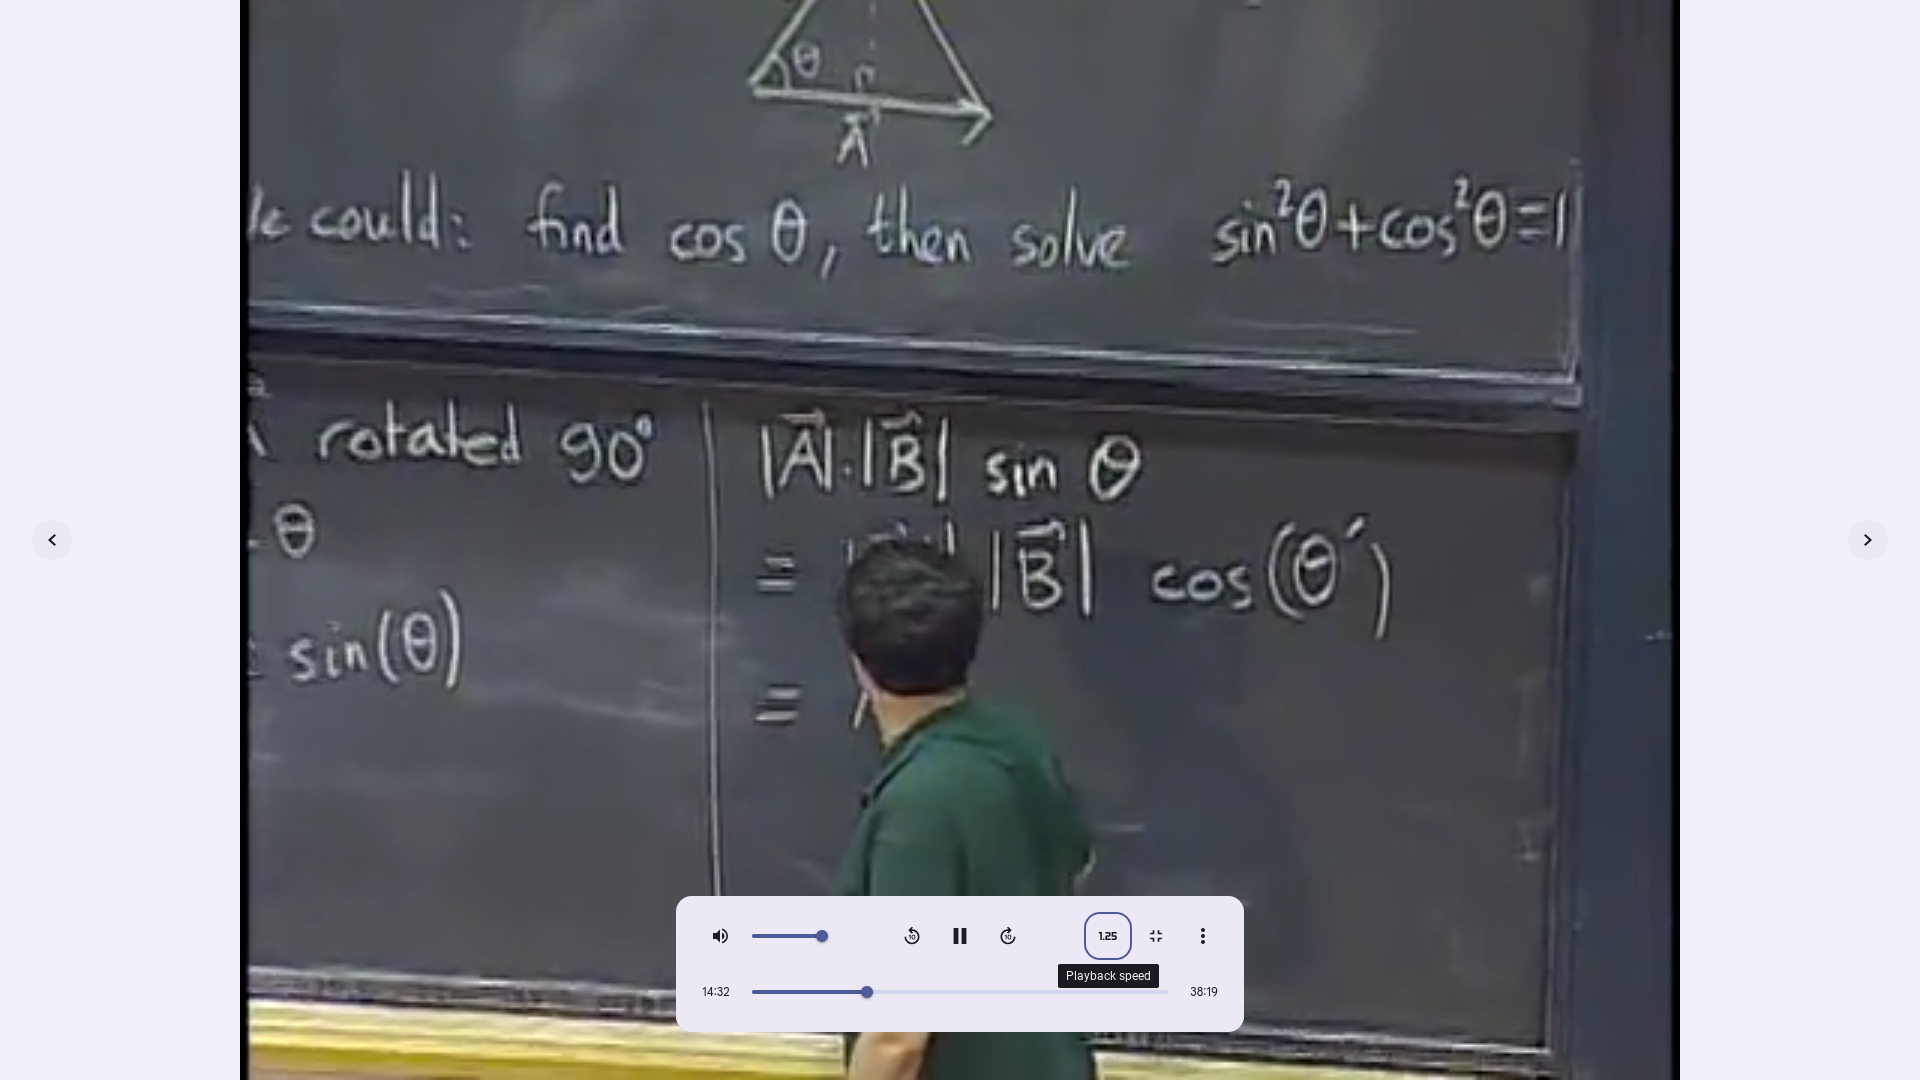 θ
A
could: find cos θ, then solve sin²θ+cos²θ=1
rotated 90°
θ
sin(θ)
|A|·|B| sin θ
= |B| cos(θ′)
=
1.25
Playback speed
14:32
38:19